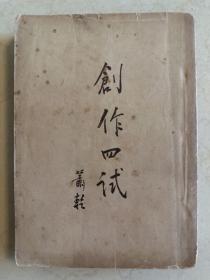 創作四试
蕭乾